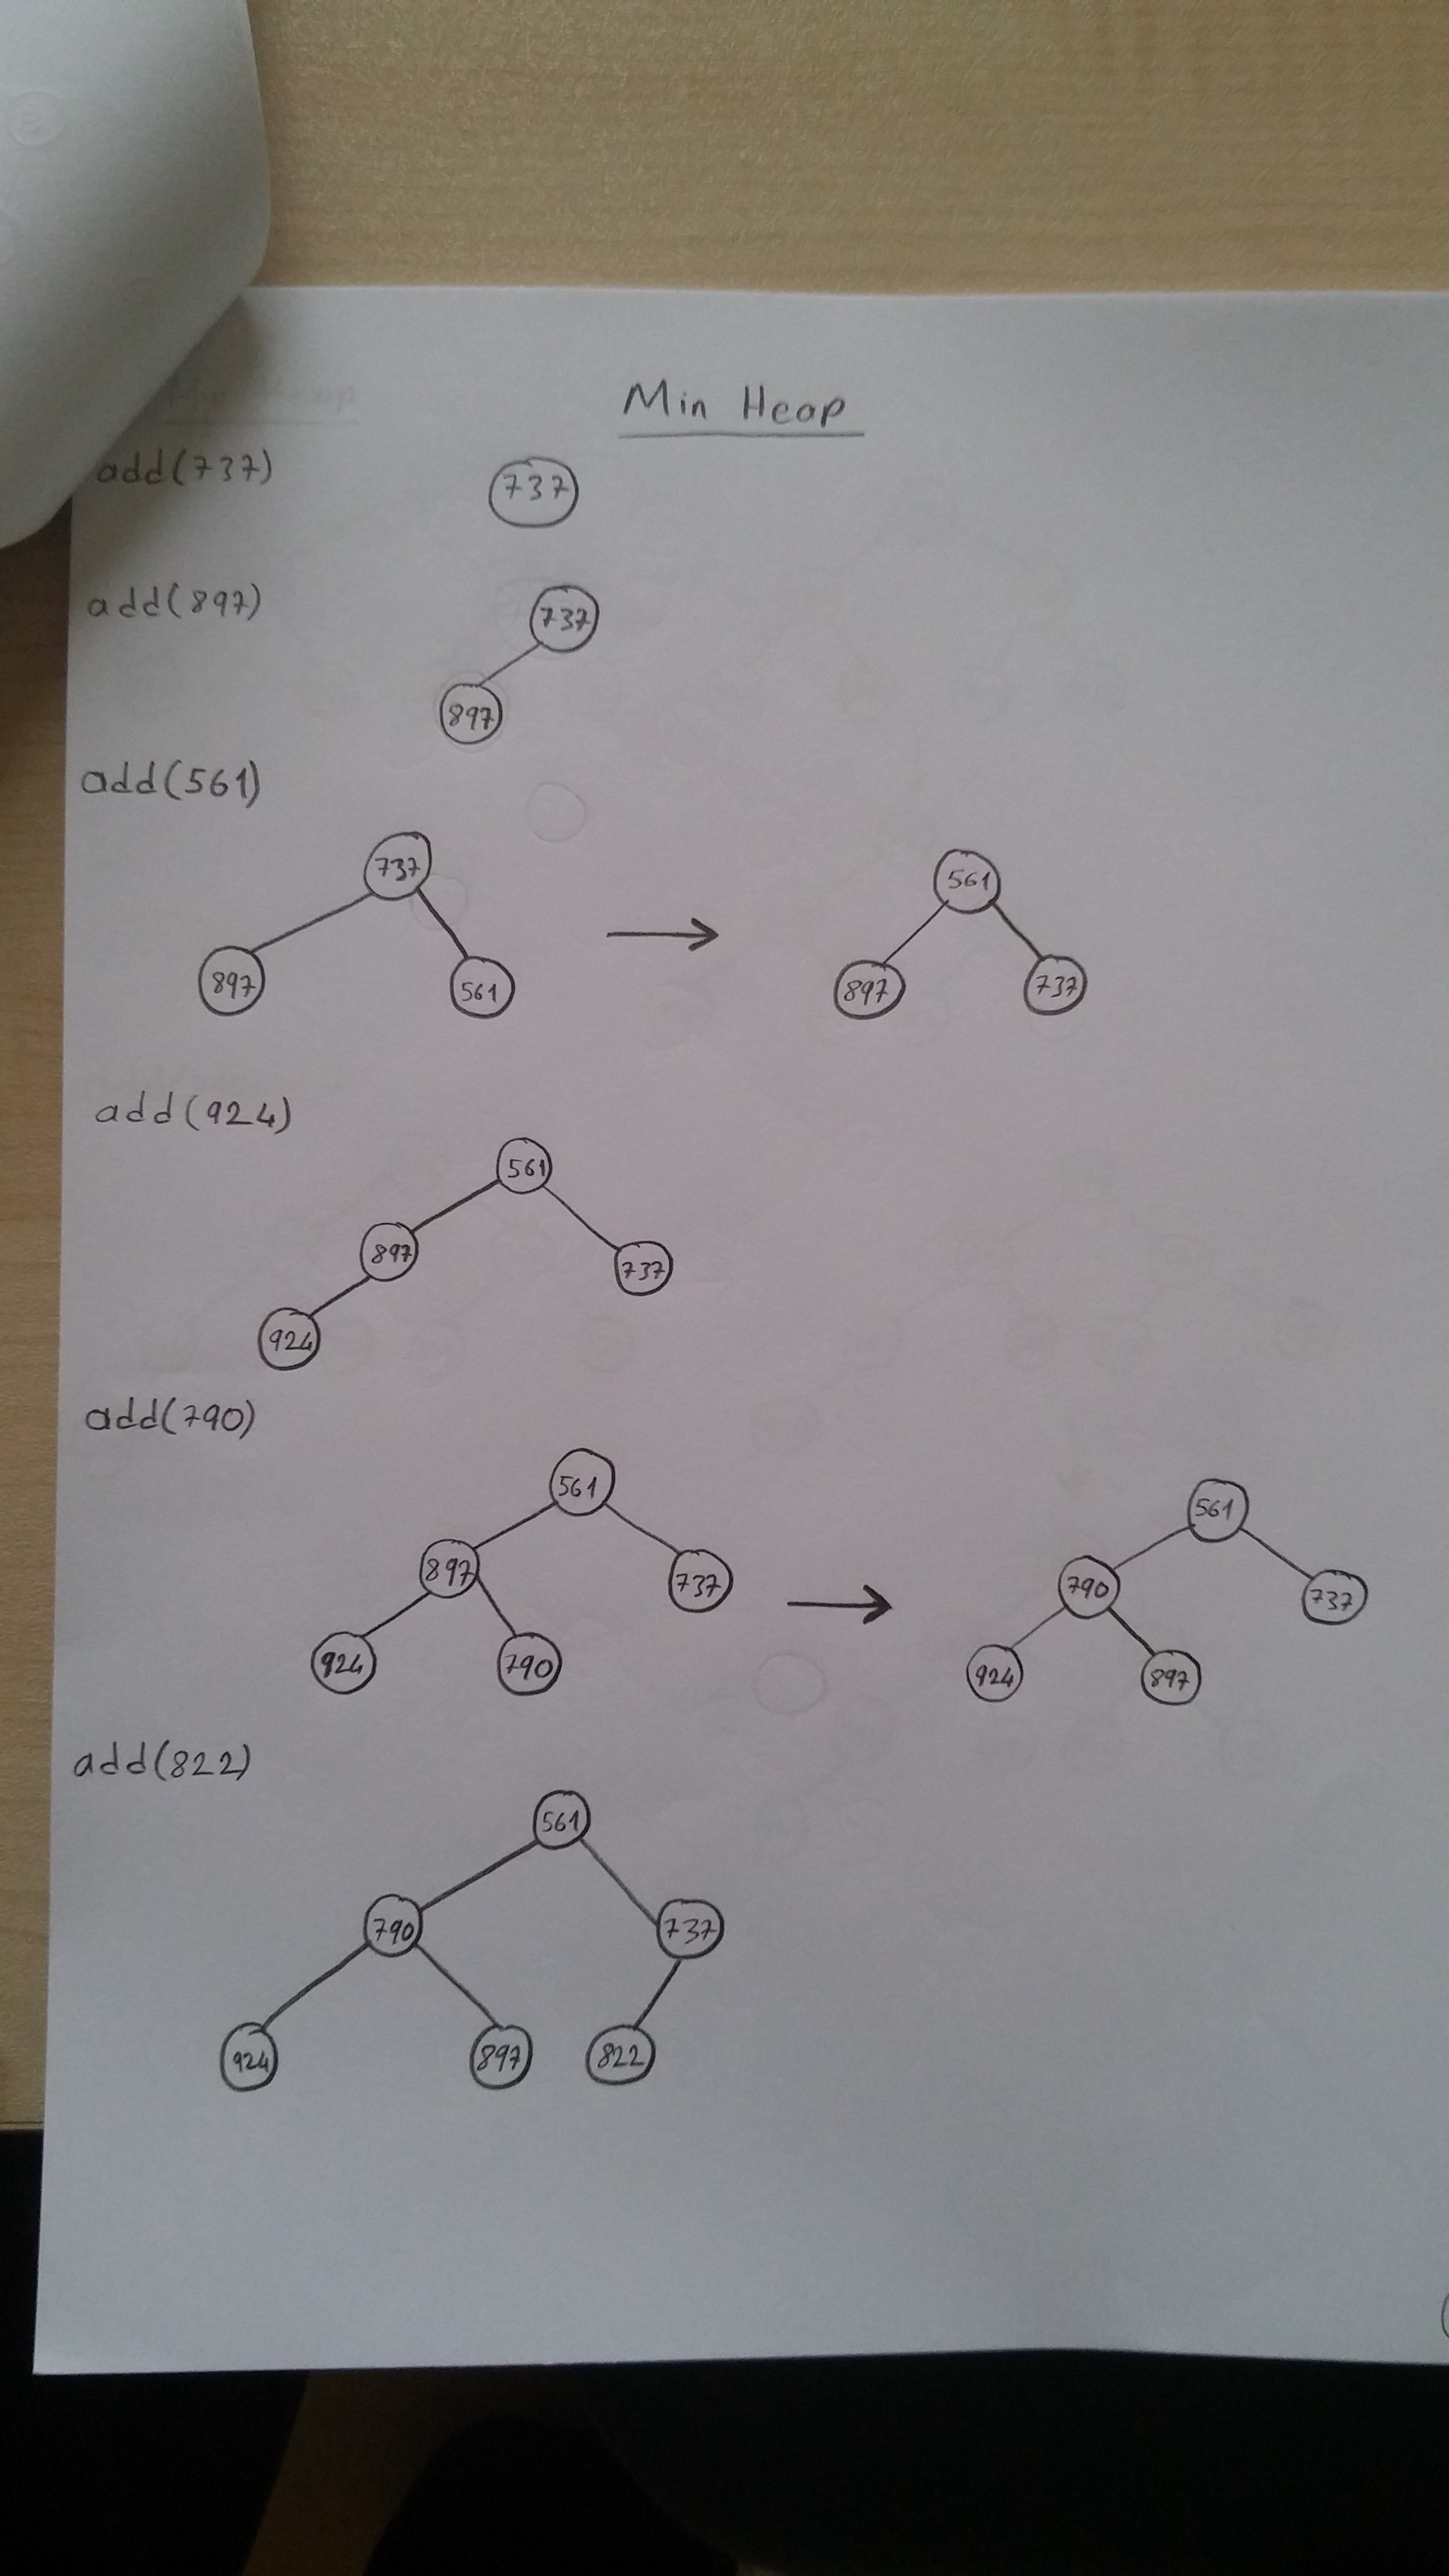 Min Heap
add(737)
737
add(897)
737
897
add(561)
737
561
897
561
897
737
add(924)
561
897
737
924
add(790)
561
561
897
737
790
737
924
790
924
897
add(822)
561
790
737
924
897
822